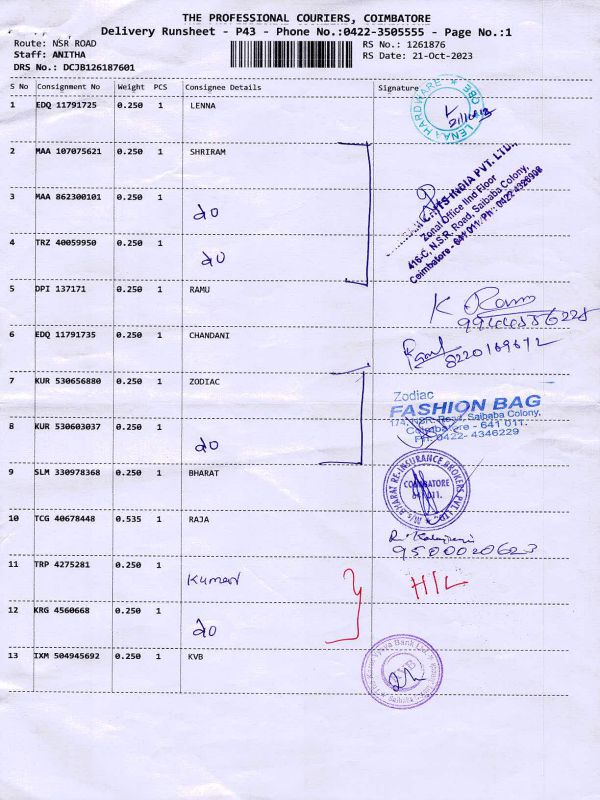 THE PROFESSIONAL COURIERS, COIMBATORE
Delivery Runsheet - P43 - Phone No.:0422-3505555 - Page No.:1
Route: NSR ROAD
RS No.: 1261876
Staff: ANITHA
RS Date: 21-Oct-2023
DRS No.: DCJB126187601
S No Consignment No Weight PCS Consignee Details Signature
1 EDQ 11791725 0.250 1 LENNA
LENA HARDWARE * CBE
2 MAA 107075621 0.250 1 SHRIRAM
INDIA PVT. LTD
Zonal Office IInd Floor
416-C, N.S.R. Road, Saibaba Colony,
Coimbatore - 641 011. Ph: 0422-4326998
3 MAA 862300101 0.250 1 do
4 TRZ 40059950 0.250 1 do
5 DPI 137171 0.250 1 RAMU
K Ramu
6 EDQ 11791735 0.250 1 CHANDANI
8220169672
7 KUR 530656880 0.250 1 ZODIAC
Zodiac
FASHION BAG
174, NSR. Road, Saibaba Colony,
Coimbatore - 641 011.
PH: 0422- 4346229
8 KUR 530603037 0.250 1 do
9 SLM 330978368 0.250 1 BHARAT
M/s. BHARAT RE-INSURANCE BROKERS PVT. LTD.
COIMBATORE
641 011.
10 TCG 40678448 0.535 1 RAJA
9500020623
11 TRP 4275281 0.250 1 Kumar
H/L
12 KRG 4560668 0.250 1 do
13 IXM 504945692 0.250 1 KVB
The Karur Vysya Bank Ltd.
KVB